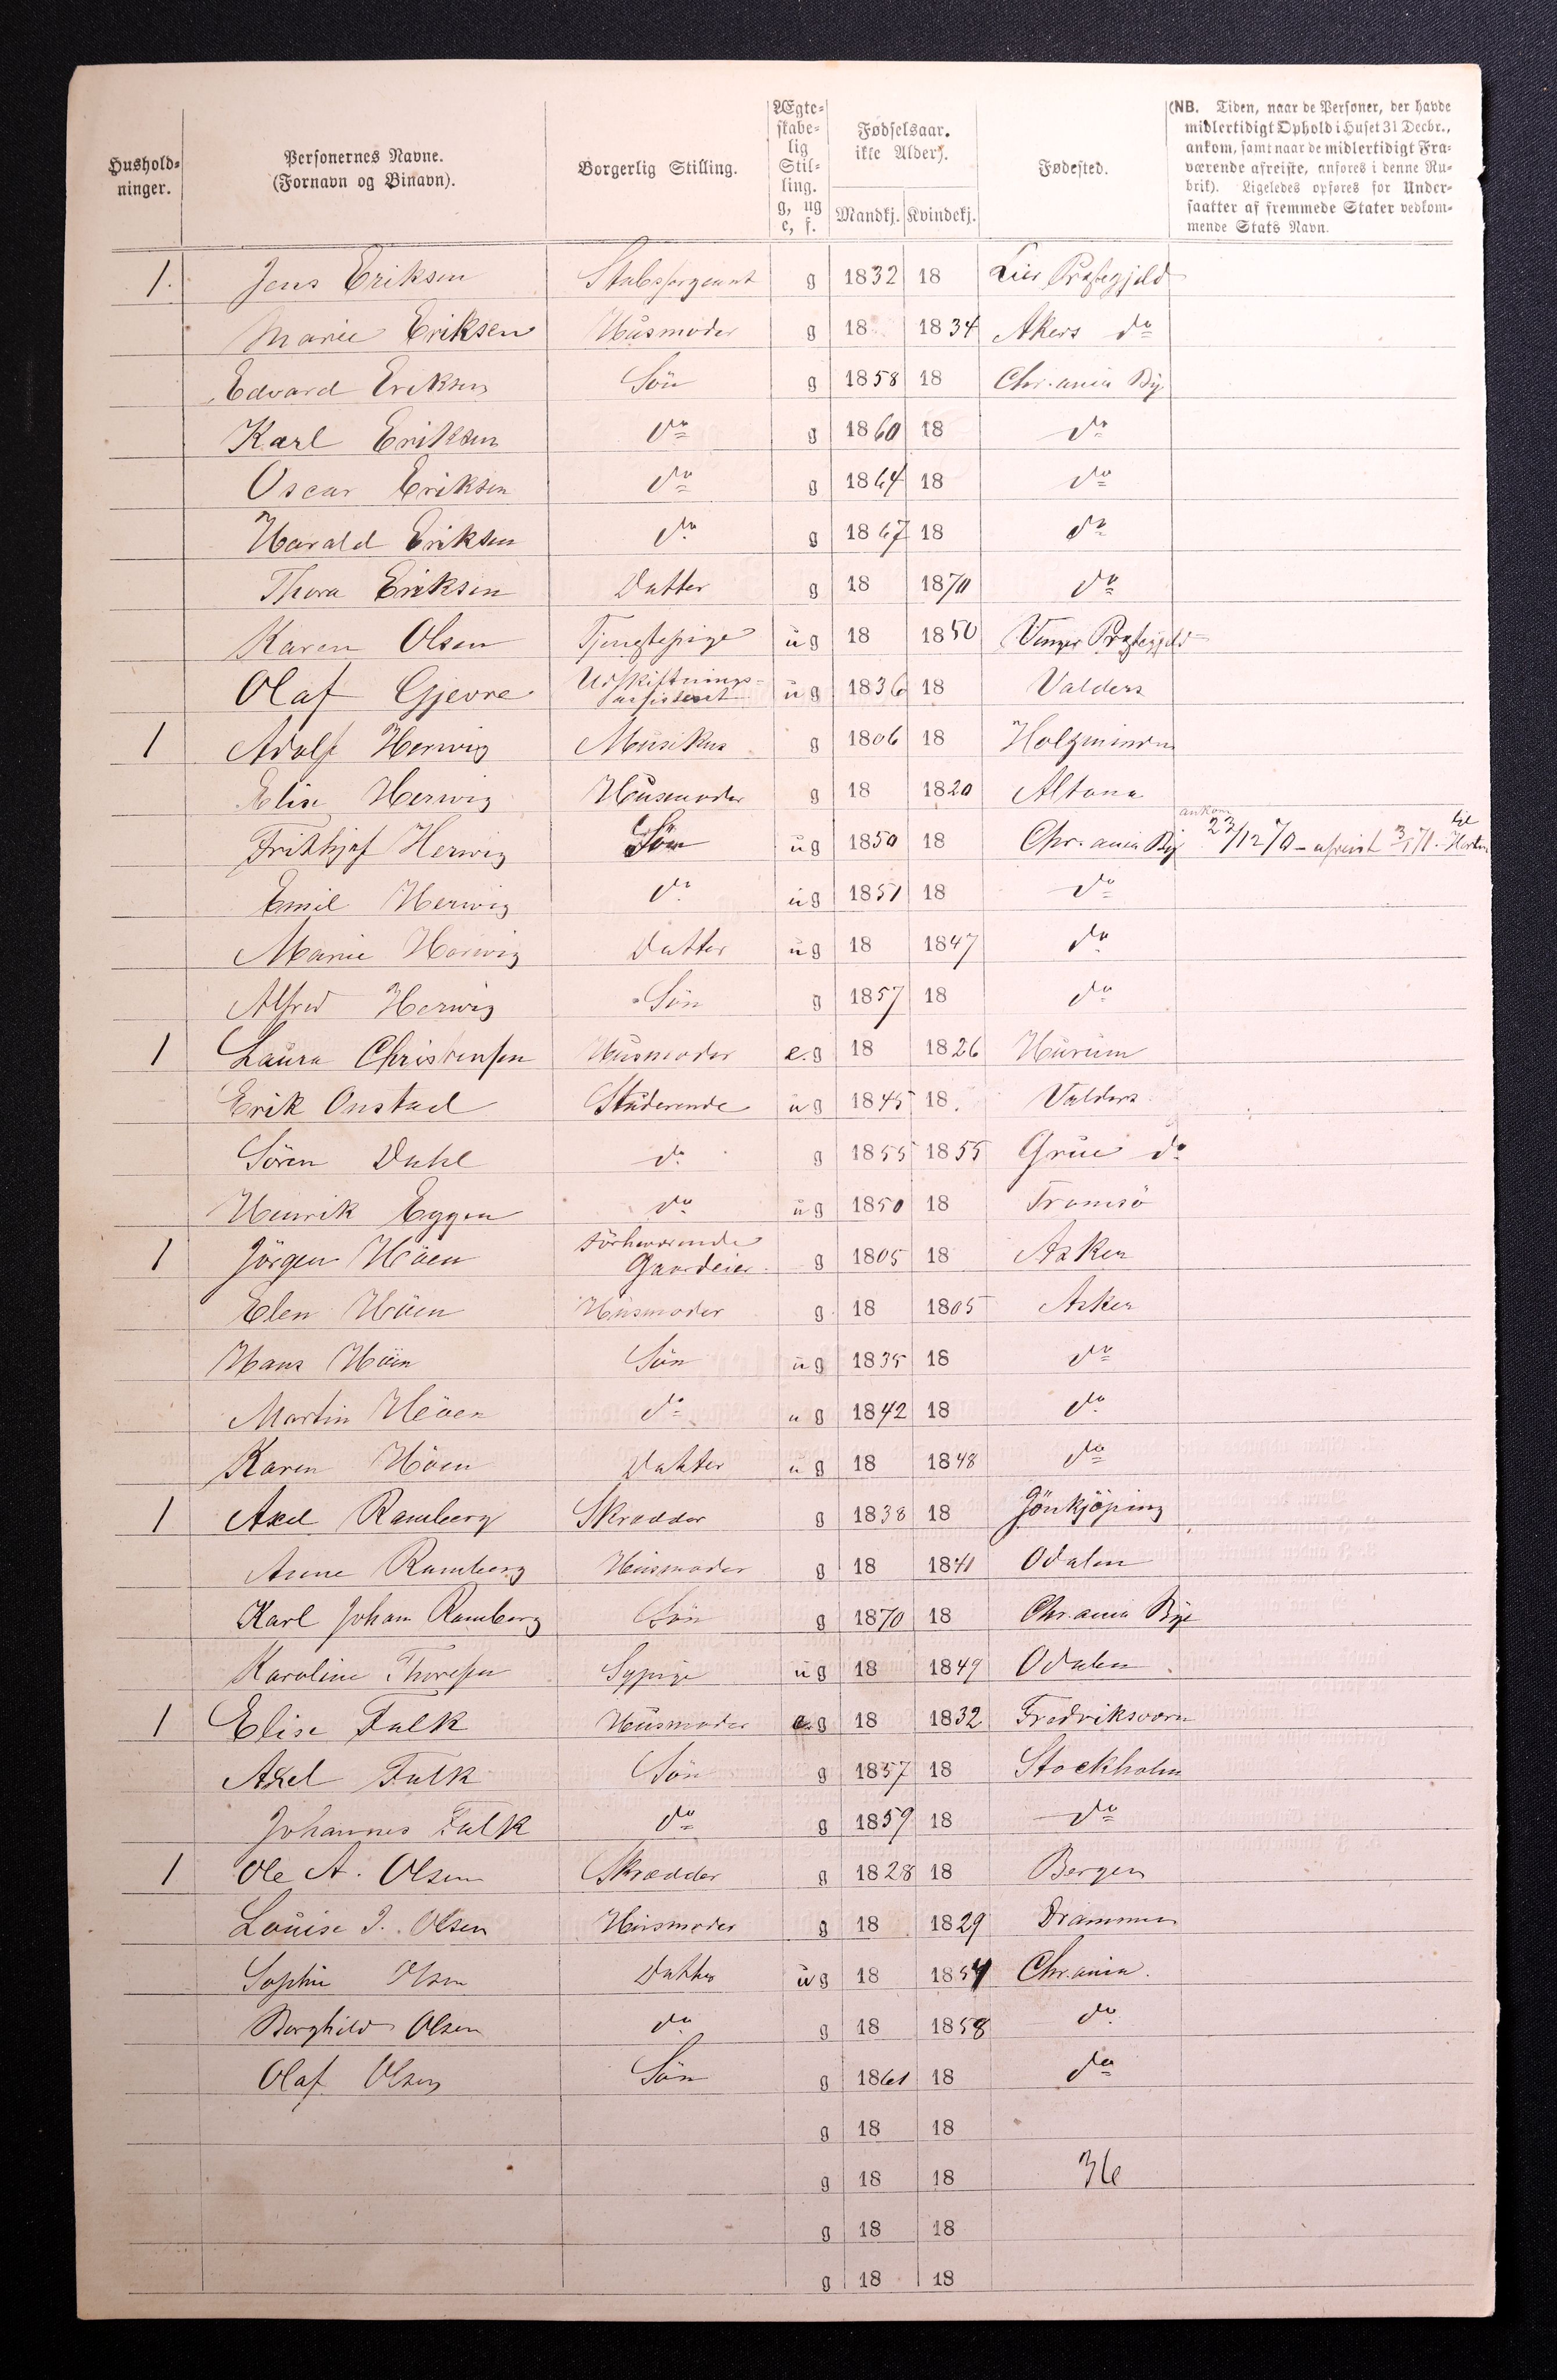 Hushold-
ninger.
Personernes Navne.
(Fornavn og Binavn).
Borgerlig Stilling.
Ægte-
skabe-
lig
Stil-
ling.
g, ug
e, f.
Fødselsaar.
ikke Alder).
Mandkj. Kvindekj.
Fødested.
(NB. Tiden, naar de Personer, der havde
midlertidigt Ophold i Huset 31 Decbr.,
ankom, samt naar de midlertidigt Fra-
værende afreiste, anføres i denne Ru-
brik). Ligeledes opføres for Under-
saatter af fremmede Stater vedkom-
mende Stats Navn.
1. Jens Eriksen Stabssergeant g 1832 18 Lier Præstegjeld
Marie Eriksen Husmoder g 18 1834 Akers do
Edvard Eriksen Søn g 1858 18 Chr.ania By
Karl Eriksen do g 1860 18 do
Oscar Eriksen do g 1864 18 do
Harald Eriksen do g 1867 18 do
Thora Eriksen Datter g 18 1870 do
Karen Olsen Tjenestepige ug 18 1850 Vinger Præstegjeld
Olaf Gjevre Udskiftnings- ug 1836 18 Valders
1 Adolf Herwig Musikus g 1806 18 Holzminden
Elise Herwig Husmoder g 18 1820 Altona
Frithjof Herwig Søn ug 1850 18 Chr.ania By ankom 23/12 70 - afreist 3/1 71 til Horten
Emil Herwig do ug 1851 18 do
Marie Herwig Datter ug 18 1847 do
Alfred Herwig Søn g 1857 18 do
1 Laura Christensen Husmoder e.g 18 1826 Hurum
Erik Onstad Studerende ug 1845 18 Valders
Sören Dahl do g 1855 1855 Grue do
Henrik Eggen do ug 1850 18 Tromsö
1 Jörgen Höen förhenværende Gaardeier g 1805 18 Asker
Elen Höen Husmoder g 18 1805 Asker
Hans Höen Sön ug 1835 18 do
Martin Höen do ug 1842 18 do
Karen Höen Datter ug 18 1848 do
1 Axel Ramberg Skrædder g 1838 18 Jönkjöping
Anne Ramberg Husmoder g 18 1841 Odalen
Karl Johan Ramberg Sön g 1870 18 Chr.ania Bye
Karoline Thoresen Sypige ug 18 1849 Odalen
1 Elise Falk Husmoder e.g 18 1832 Fredriksværn
Axel Falk Sön g 1857 18 Stockholm
Johannes Falk do g 1859 18 do
1 Ole A. Olsen Skrædder g 1828 18 Bergen
Louise J. Olsen Husmoder g 18 1829 Drammen
Sophie Olsen Datter ug 18 1854 Chr.ania.
Borghild Olsen do g 18 1858 do
Olaf Olsen Sön g 1861 18 do
g 18 18
g 18 18 36
g 18 18
g 18 18